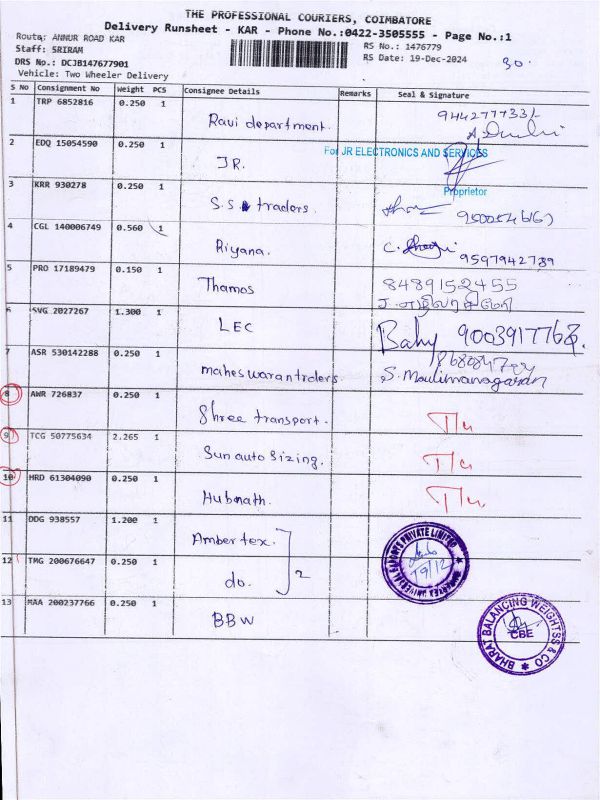 THE PROFESSIONAL COURIERS, COIMBATORE
Delivery Runsheet - KAR - Phone No.:0422-3505555 - Page No.:1
Route: ANNUR ROAD KAR
RS No.: 1476779
Staff: SRIRAM
RS Date: 19-Dec-2024
30.
DRS No.: DCJB147677901
Vehicle: Two Wheeler Delivery
S No Consignment No Weight PCS Consignee Details Remarks Seal & Signature
1 TRP 6852816 0.250 1 Ravi department. 9442777331-
2 EDQ 15054590 0.250 1 JR.
For JR ELECTRONICS AND SERVICES
Proprietor
3 KRR 930278 0.250 1 S.S traders.
4 CGL 140006749 0.560 1 Riyana. 9597942789
5 PRO 17189479 0.150 1 Thamos 8489152455
6 SVG 2027267 1.300 1 LEC Baby 9003917763.
7 ASR 530142288 0.250 1 maheswarantrders.
8 AWR 726837 0.250 1 Shree transport.
9 TCG 50775634 2.265 1 Sun auto sizing.
10 HRD 61304090 0.250 1 Hubnath.
11 DDG 938557 1.200 1 Amber tex.
12 TMG 200676647 0.250 1 do. 2
19/12
13 MAA 200237766 0.250 1 BBW
BHARAT BALANCING WEIGHTSS & CO
CBE